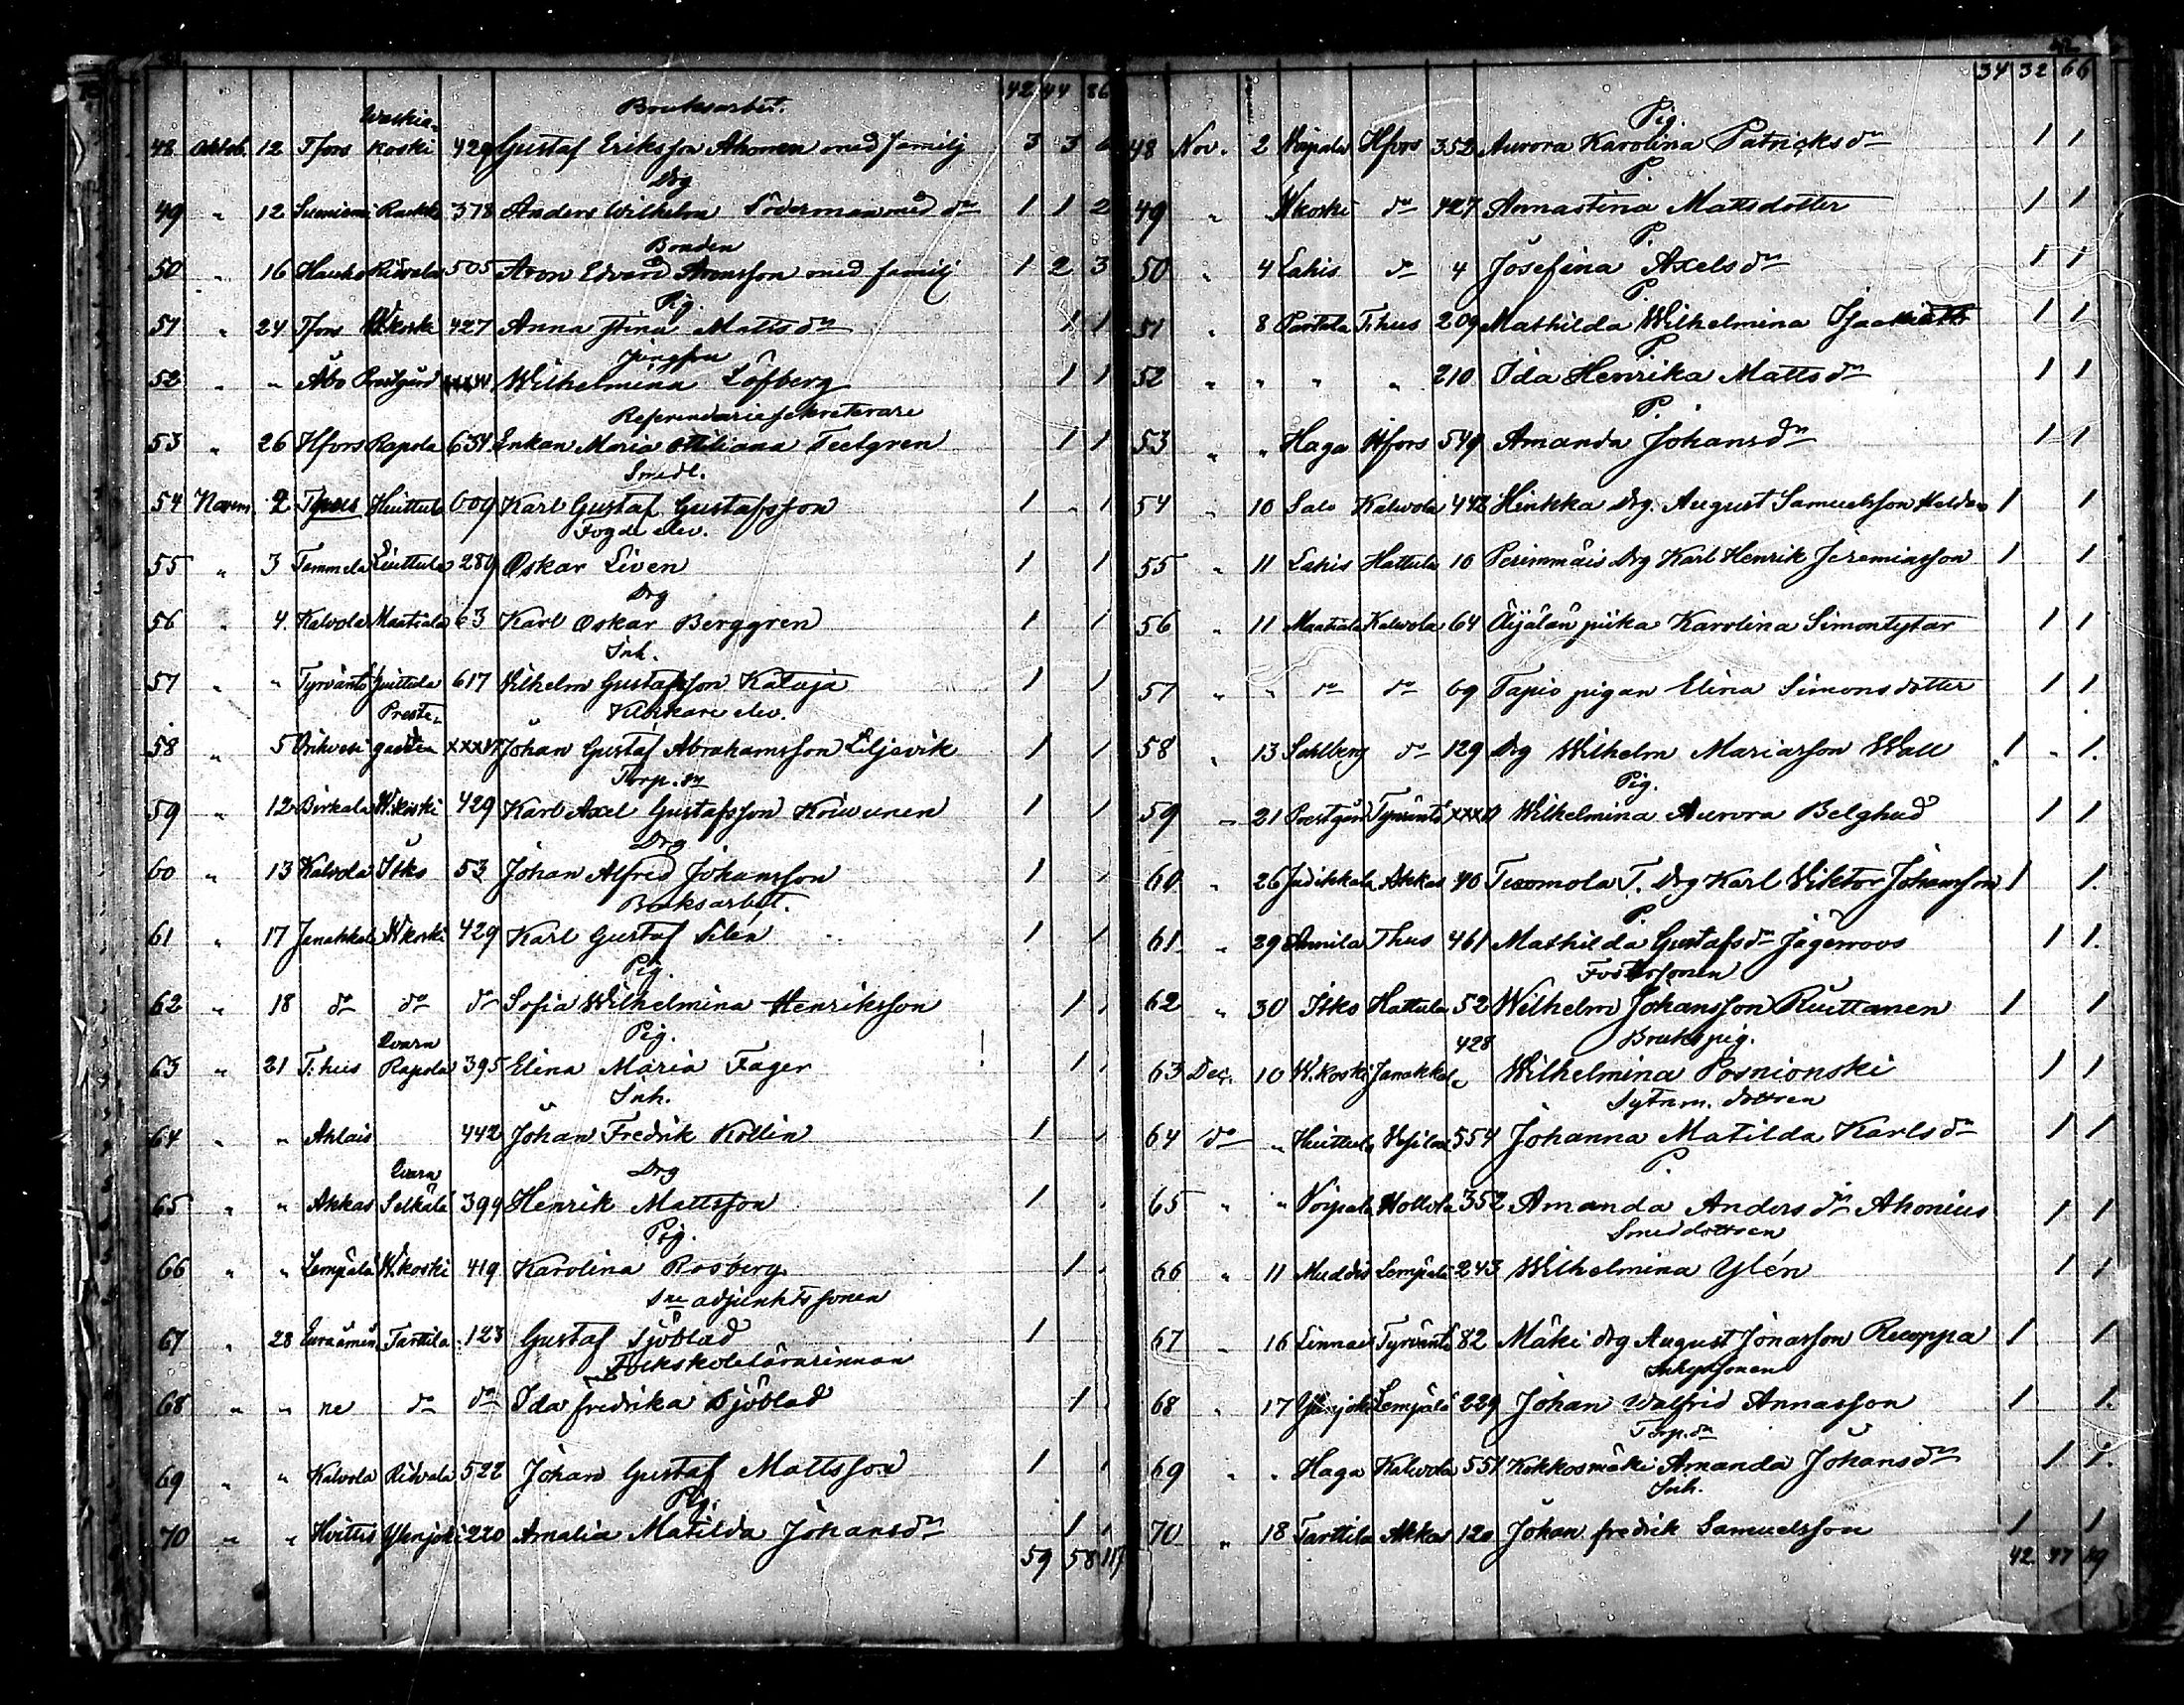 42 44 86
Bruksarbet.
Waskia-
48 Oktob. 12 Tfors koski 429 Gustaf Eriksson Ahonen med familj 3 3 6
Drg
49 " 12 378 Anders Wilhelm Söderman med dn 1 1 2
Bonden
50 " 16 Hauho Ridvala 505 Aron Edvard Aronsson med familj 1 2 3
Pig.
51 " 24 Tfors W.koski 427 Anna Stina Matts dn 1 1
Jungfru
52 " " Åbo Prestgård Wilhelmina Löfberg 1 1
Referendariesekreterare
53 " 26 Hfors Rapola 634 Enkan Maria Ottiliana Teetgren 1 1
Smedl.
54 Novem. 2 Huittula 609 Karl Gustaf Gustafsson 1 1
Fogde elev.
55 " 3 Tammela Liuttula 280 Oskar Liven 1 1
Drg
56 " 4. Kalvola Maatiala 63 Karl Oskar Berggren 1 1
Inh.
57 " " Tyrväntö Huittula 617 Wilhelm Gustafsson Kataja 1 1
Preste- Klockare elev.
58 " 5 Orihvesi gården XXXVI Johan Gustaf Abrahamsson Liljevik 1 1
Torp. sn
59 " 12 Birkala W.koski 429 Karl Axel Gustafsson Koiwunen 1 1
Drg
60 " 13 Kalvola Itko 53 Johan Alfred Johansson 1 1
Bruksarbet.
61 " 17 Janakkala W.koski 429 Karl Gustaf Silén 1 1
Pig.
62 " 18 do do do Sofia Wilhelmina Henriksson 1 1
Qvarn Pig.
63 " 21 T.hus Rapola 395 Elina Maria Fager 1 1
Inh.
64 " " Ahlais 442 Johan Fredrik Kollin 1 1
Qvarn Drg
65 " " Akkas Selkälä 399 Henrik Mattsson 1 1
Pig.
66 " " Lempälä W.koski 419 Karolina Rosberg 1 1
Sne adjunkts sonen
67 " 28 Euraåminne Tarttila 123 Gustaf Sjöblad 1
Folkskolelärarinnan
68 " " ne do do Ida fredrika Sjöblad 1
69 " " Kalvola Ridvala 522 Johan Gustaf Mattsson 1 1
Pig.
70 " " Hvittis Ylenjoki 220 Amalia Matilda Johansdn 1 1
59 58 117
34 32 66
Pig.
48 Nov. 2 Voipala Hfors 352 Aurora Karolina Patricksdn 1 1
P.
49 " W.koski do 427 Annastina Mattsdotter 1 1
P.
50 " 4 Lahis do 4 Josefina Axelsdn 1 1
P.
51 " 8 Partala T:hus 209 Mathilda Wilhelmina 1 1
P.
52 " " " " 210 Ida Henrika Mattsdn 1 1
P.
53 " " Haga Hfors 549 Amanda Johansdn 1 1
54 " 10 Salo Kalvola 442 Hinkka Drg. August Samuelsson 1 1
55 " 11 Lahis Hattula 10 Perimmäis Drg Karl Henrik Jeremiasson 1 1
56 " 11 Maatiala Kalvola 64 Äijälän piika Karolina Simontytar 1 1
57 " " do do 69 Tapio pigan Elina Simonsdotter 1 1
58 " 13 Sahlberg do 129 Drg Wilhelm Mariasson Wall 1 " 1.
Pig.
59 " 21 Prestgård Tyrväntö Wilhelmina Aurora Belghud 1 1
60 " 26 Judikkala Akkas 40 Tuomola T. Drg Karl Wiktor Johansson 1 1.
P.
61 " 29 Annila Thus 461 Mathilda Gustafsdn Jägerroos 1 1.
Fostersonen
62 " 30 Itko Hattula 52 Wilhelm Johansson Ruuttanen 1 1
428 Brukspig.
63 Dec. 10 W.koski Janakkala Wilhelmina Posnionski 1 1
Sytn.m. dottren
64 do " Huittula 554 Johanna Matilda Karlsdn 1 1
P.
65 " " Voipala Hollola 352 Amanda Andersdn Ahonius 1 1
Smeddottren
66 " 11 Lempälä 243 Wilhelmina Ylén 1 1
67 " 16 Linnais Tyrväntö 82 Mäki drg August Jonasson Ruoppa 1 1
Inhysesonen
68 " 17 Ylenjoki Lempälä 229 Johan Walfrid Annasson 1 1.
Torp. dn
69 " " Haga Kalvola 551 Kokkosmäki Amanda Johansdn 1 1.
Inh.
70 " 18 Tarttila Akkas 120 Johan fredrik Samuelsson 1 1
42 47 89